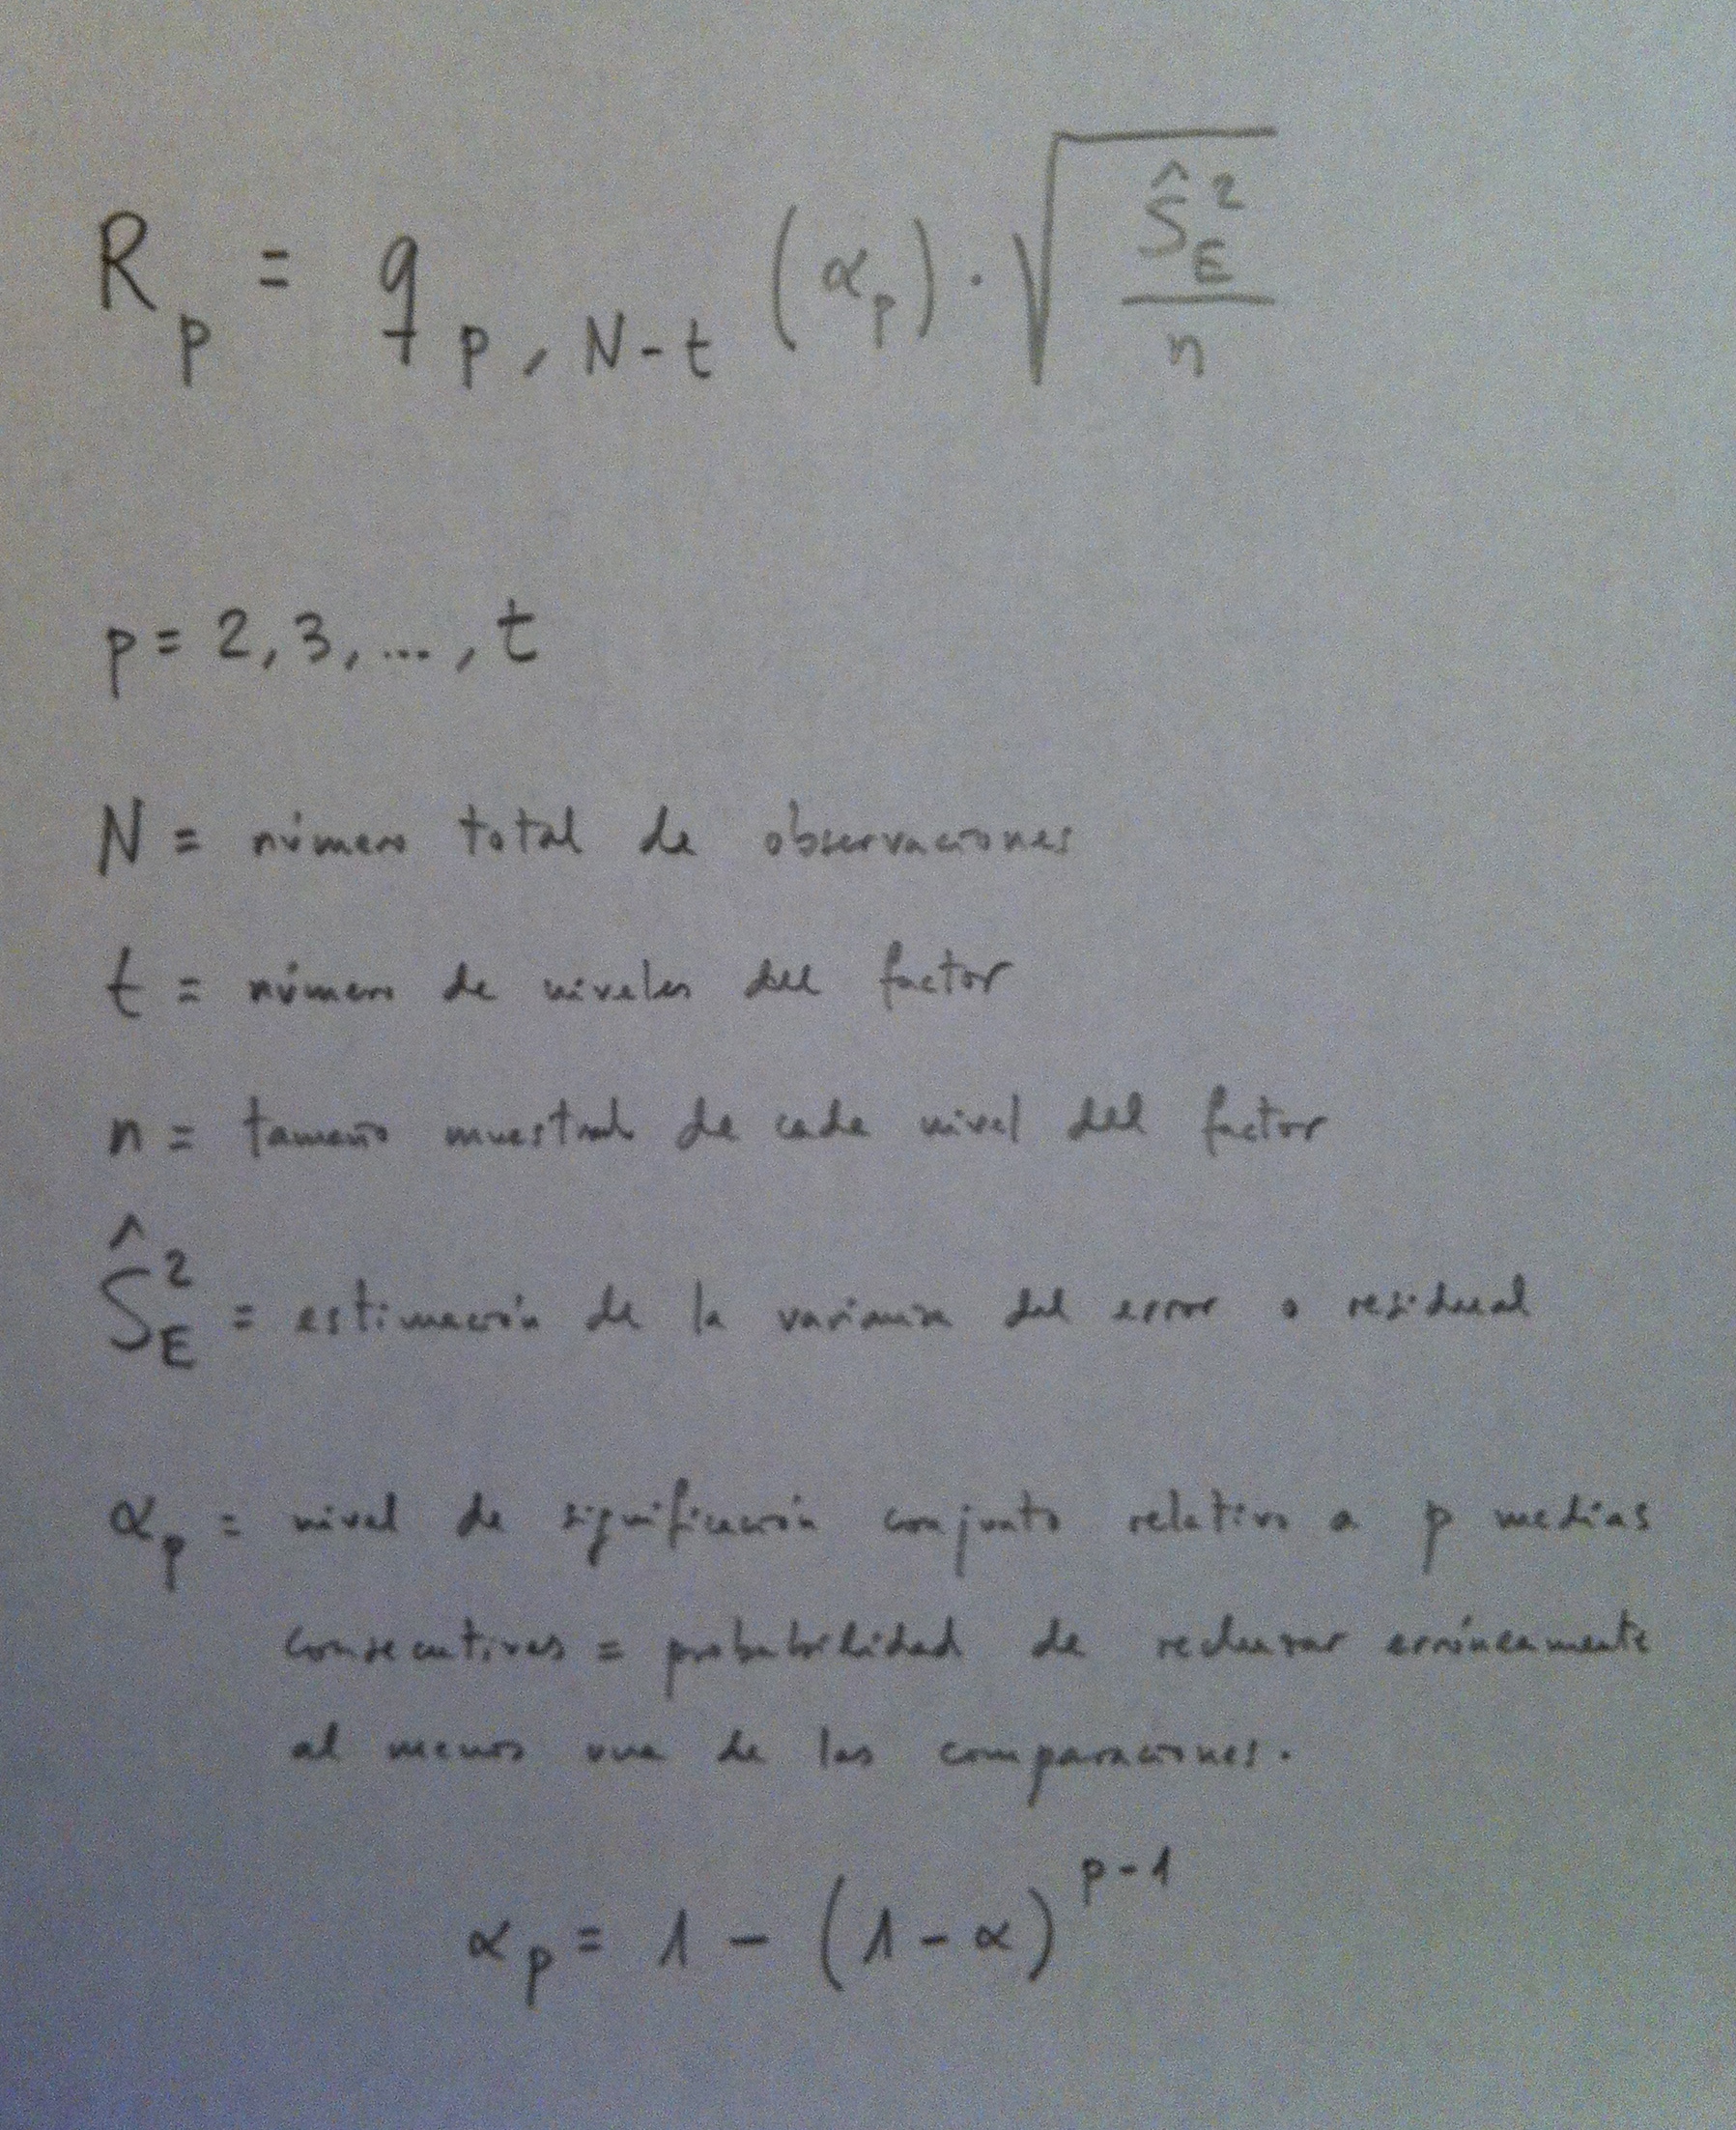 R_p = q_{p, N-t} (α_p) · √(Ŝ_E² / n)
p = 2, 3, ..., t
N = número total de observaciones
t = número de niveles del factor
n = tamaño muestral de cada nivel del factor
Ŝ_E² = estimación de la varianza del error o residual
α_p = nivel de significación conjunto relativo a p medias
consecutivas = probabilidad de rechazar erróneamente
al menos una de las comparaciones.
α_p = 1 - (1 - α)^{p-1}